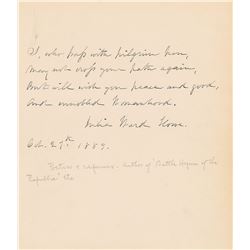 I, who pass with pilgrim
May not cross your path again,
But will wish you peace and good,
And ennobled Womanhood.
Julia Ward Howe.
Oct. 27th 1889.
author of "Battle Hymn of the
Republic" etc